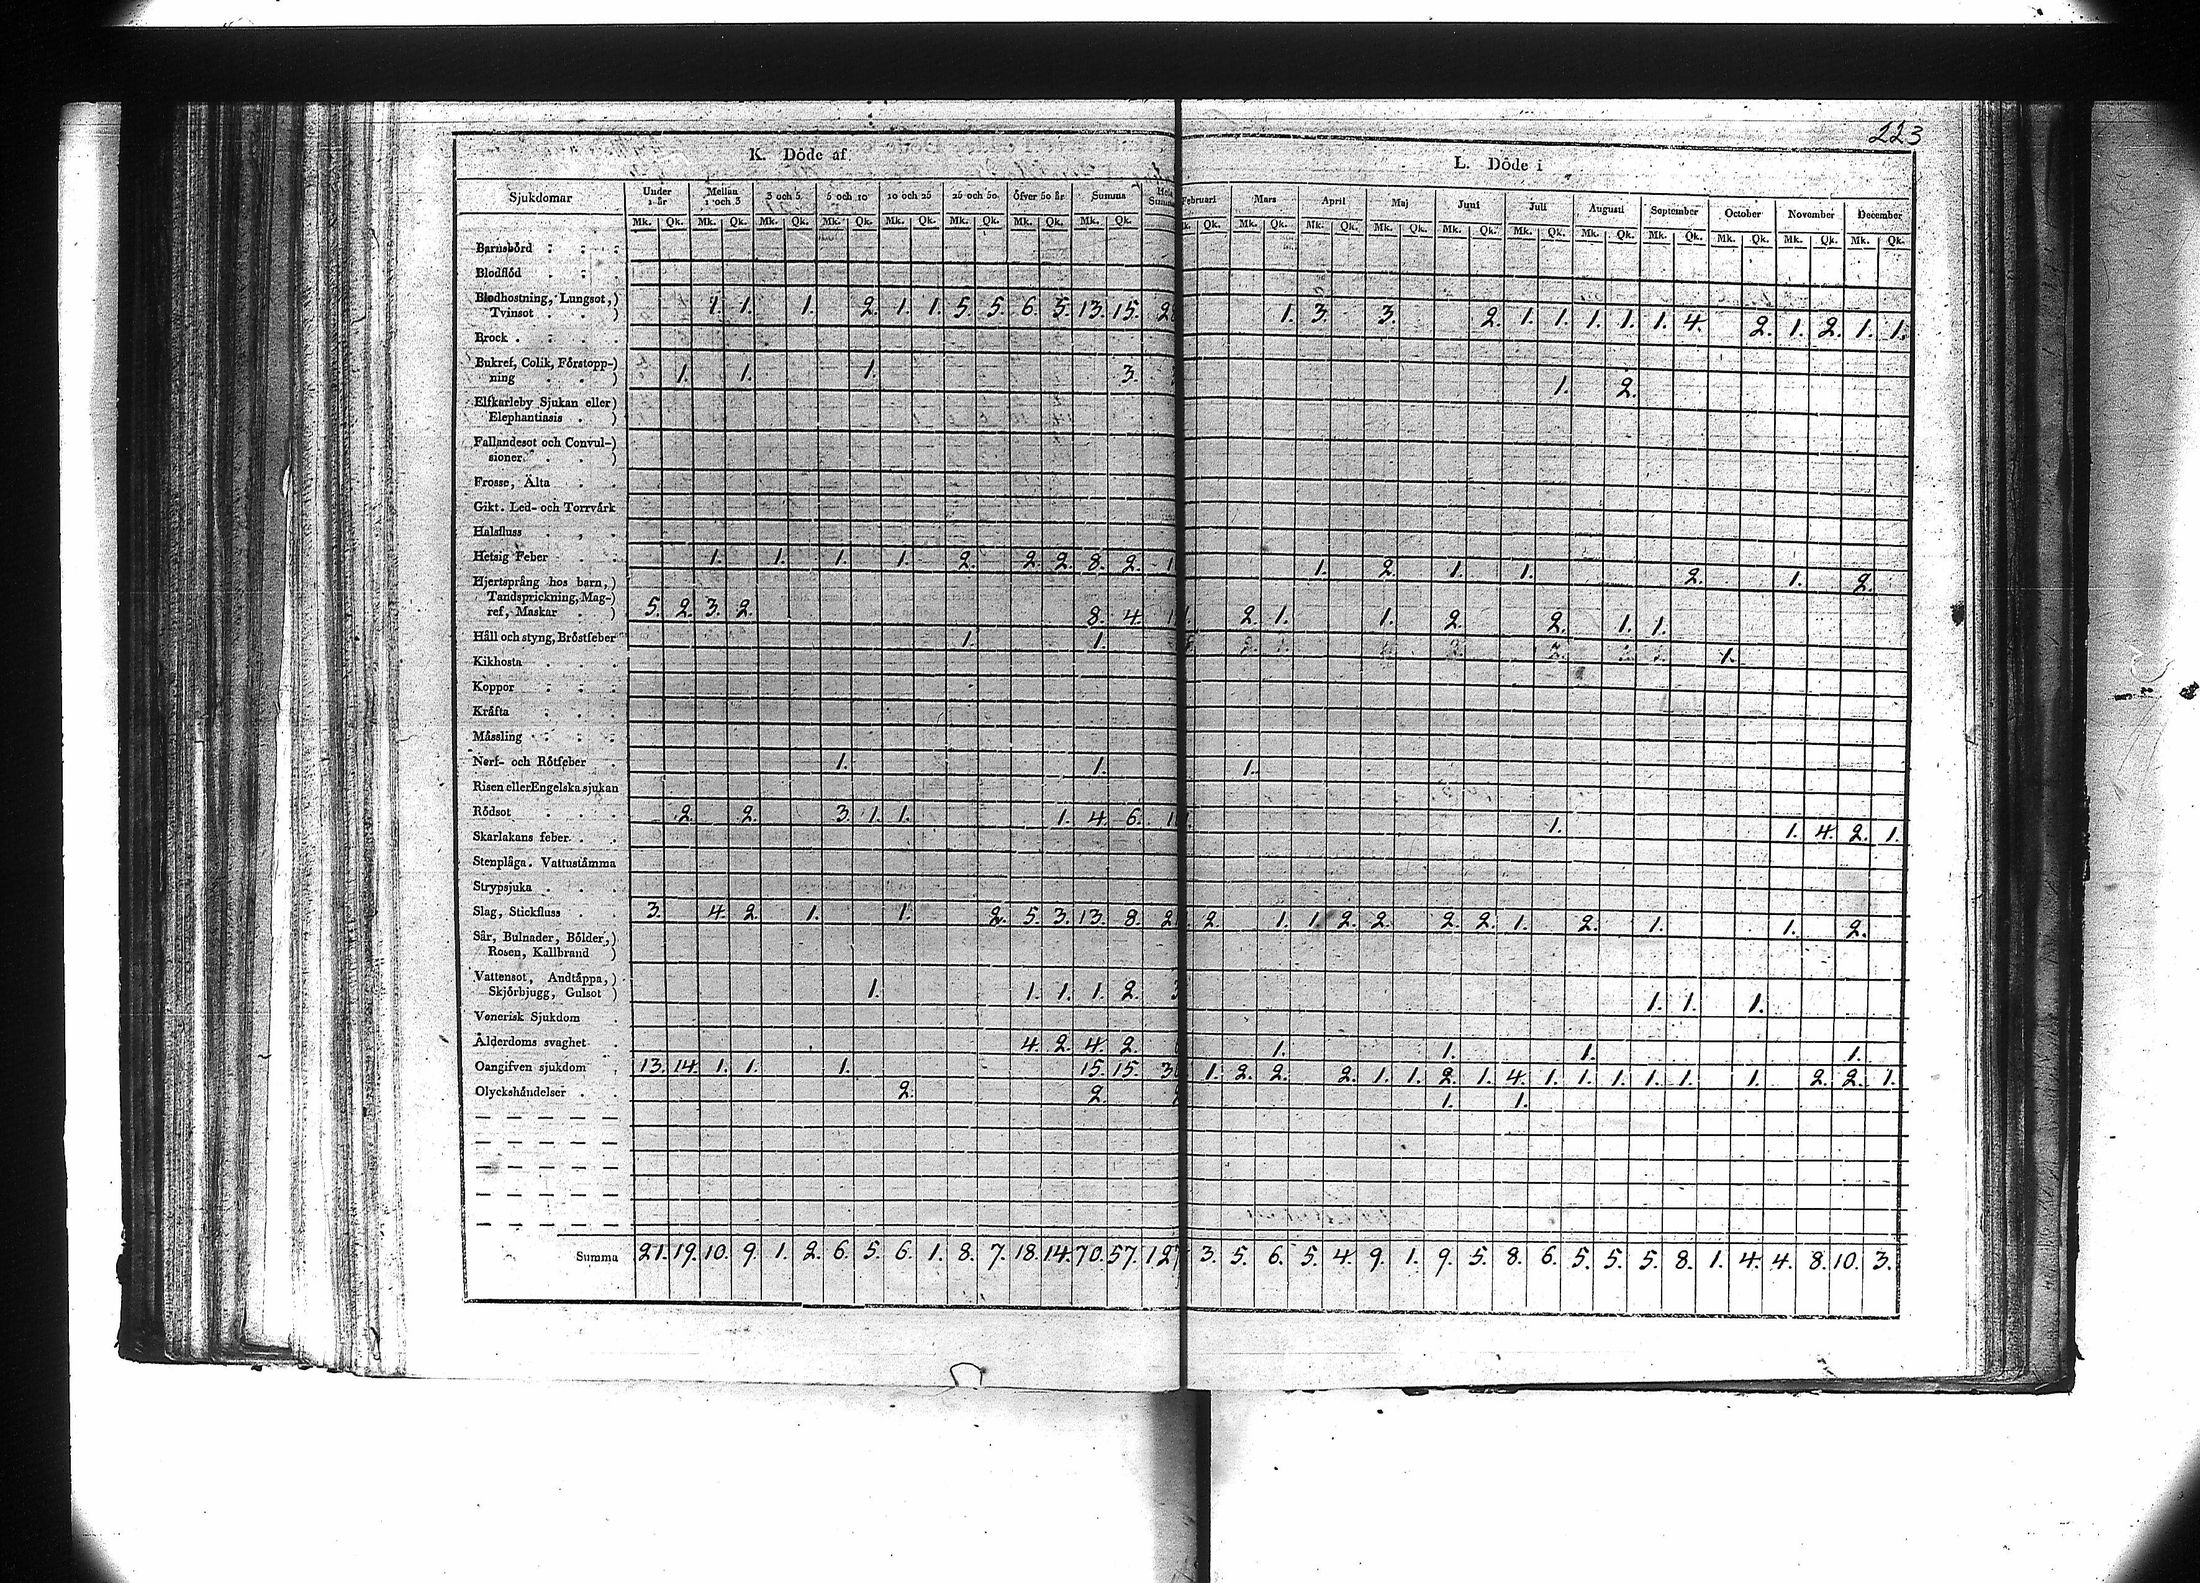 223
K. Döde af
L. Döde i
Sjukdomar Under 1 år Mellan 1 och 3 3 och 5 5 och 10 10 och 25 25 och 50 öfver 50 år Summa
Februari Mars April Maj Juni Juli Augusti September October November December
Mk. Qk. Mk. Qk. Mk. Qk. Mk. Qk. Mk. Qk. Mk. Qk. Mk. Qk. Mk. Qk.
Qk. Mk. Qk. Mk. Qk. Mk. Qk. Mk. Qk. Mk. Qk. Mk. Qk. Mk. Qk. Mk. Qk. Mk. Qk. Mk. Qk.
Barnsbörd
Blodflöd
Blodhostning, Lungsot,)
Tvinsot . . ) 1. 1. 1. 2. 1. 1. 5. 5. 6. 5. 13. 15. 1. 3. 3. 2. 1. 1. 1. 1. 1. 4. 2. 1. 2. 1. 1.
Brock
Bukref, Colik, Förstopp-)
ning . . ) 1. 1. 1. 3. 1. 2.
Elfkarleby Sjukan eller)
Elephantiasis . )
Fallandesot och Convul-)
sioner . . )
Frosse, Älta
Gikt. Led- och Torrvärk
Halsfluss
Hetsig Feber 1. 1. 1. 1. 2. 2. 2. 8. 2. 1. 2. 1. 1. 2. 1. 2.
Hjertsprång hos barn,)
Tandsprickning, Mag-)
ref, Maskar . ) 5. 2. 3. 2. 8. 4. 2. 1. 1. 2. 2. 1. 1.
Håll och styng, Bröstfeber 1. 1. 1.
Kikhosta
Koppor
Kräfta
Mässling
Nerf- och Rötfeber 1. 1. 1.
Risen eller Engelska sjukan
Rödsot 2. 2. 3. 1. 1. 1. 4. 6. 1. 1. 4. 2. 1.
Skarlakans feber
Stenplåga. Vattustämma
Strypsjuka
Slag, Stickfluss 3. 4. 2. 1. 1. 2. 5. 3. 13. 8. 2. 1. 1. 2. 2. 2. 2. 1. 2. 1. 1. 2.
Sår, Bulnader, Bölder,)
Rosen, Kallbrand )
Vattensot, Andtäppa,)
Skjörbjugg, Gulsot ) 1. 1. 1. 1. 2. 1. 1. 1.
Venerisk Sjukdom
Ålderdoms svaghet 4. 2. 4. 2. 1. 1. 1. 1.
Oangifven sjukdom 13. 14. 1. 1. 1. 15. 15. 1. 2. 2. 2. 1. 1. 2. 1. 4. 1. 1. 1. 1. 1. 1. 2. 2. 1.
Olyckshändelser 2. 2. 1. 1.
Summa 21. 19. 10. 9. 1. 2. 6. 5. 6. 1. 8. 7. 18. 14. 70. 57. 127 3. 5. 6. 5. 4. 9. 1. 9. 5. 8. 6. 5. 5. 5. 8. 1. 4. 4. 8. 10. 3.